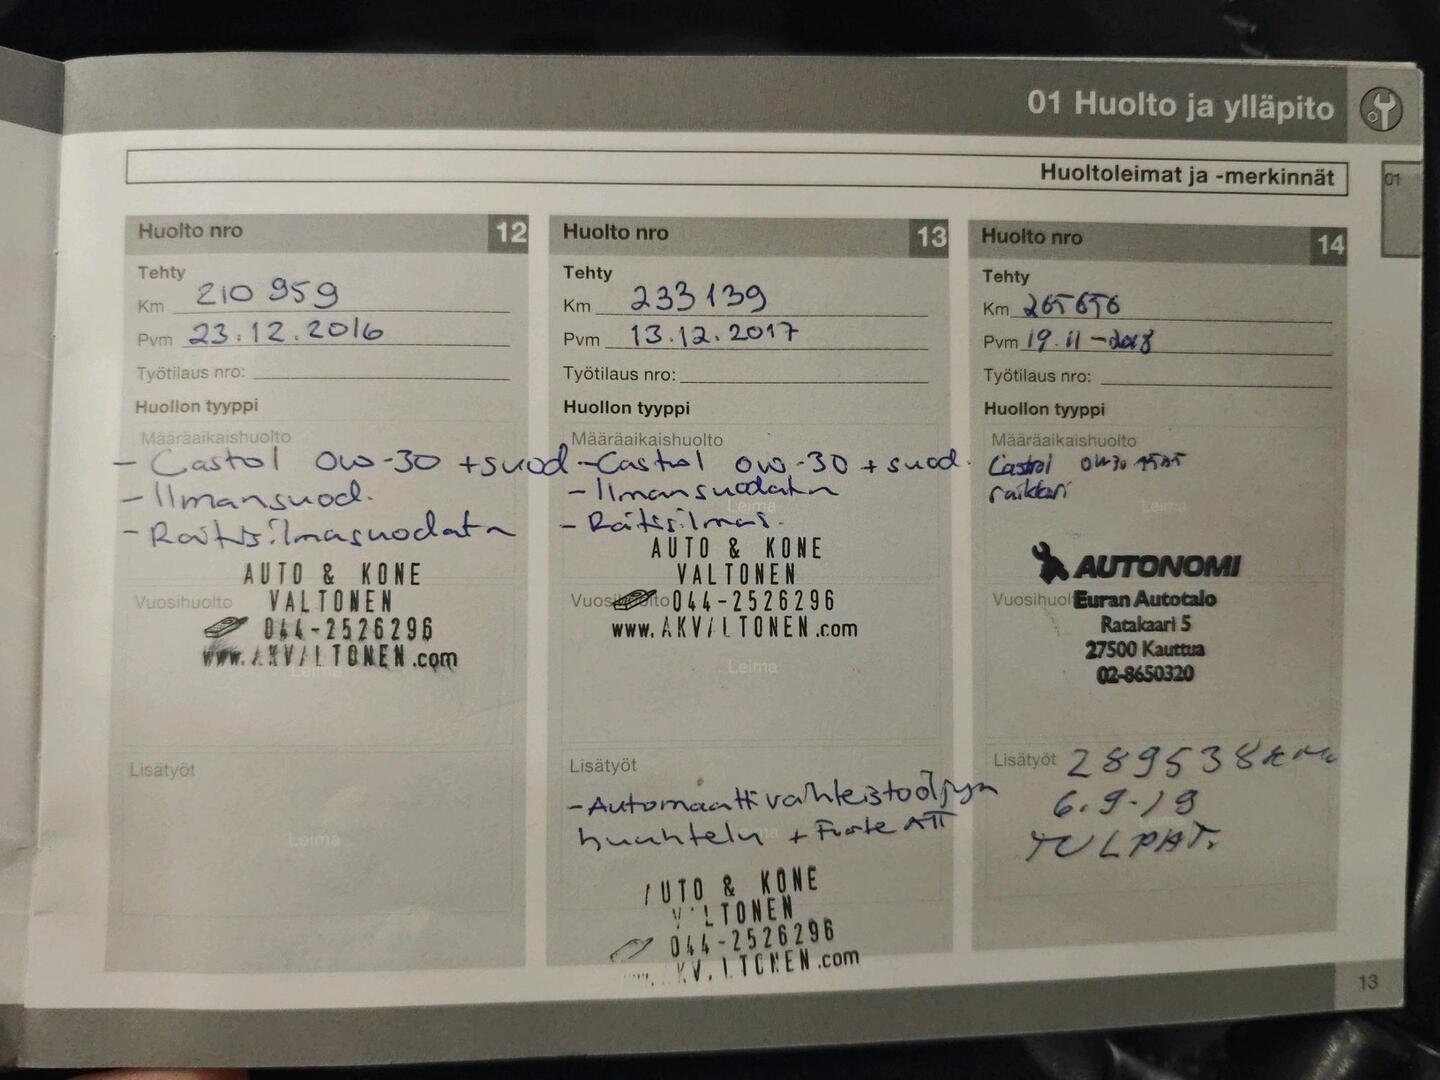 01 Huolto ja ylläpito
Huoltoleimat ja -merkinnät
01
Huolto nro 12
Tehty
Km 210 959
Pvm 23.12.2016
Työtilaus nro:
Huollon tyyppi
Määräaikaishuolto
- Castrol 0W-30 + suod
- Ilmansuod.
- Raitisilmasuodatn
AUTO & KONE
VALTONEN
Vuosihuolto
044-2526296
www.AKVALTONEN.com
Leima
Lisätyöt
Leima
Huolto nro 13
Tehty
Km 233139
Pvm 13.12.2017
Työtilaus nro:
Huollon tyyppi
Määräaikaishuolto
- Castrol 0W-30 + suod.
- Ilmansuodatn
Leima
- Raitisilmas.
AUTO & KONE
VALTONEN
Vuosihuolto
044-2526296
www.AKVALTONEN.com
Leima
Lisätyöt
- Automaattivaihteistoöljyn
huuhtelu + Forte ATF
Leima
AUTO & KONE
VALTONEN
044-2526296
Huolto nro 14
Tehty
Km 265656
Pvm 19.11-2018
Työtilaus nro:
Huollon tyyppi
Määräaikaishuolto
Castrol 0W-30
raikkari
Leima
AUTONOMI
Vuosihuolto
Euran Autotalo
Ratakaari 5
27500 Kauttua
02-8650320
Lisätyöt
289538 km
6.9-19
TULPAT.
13